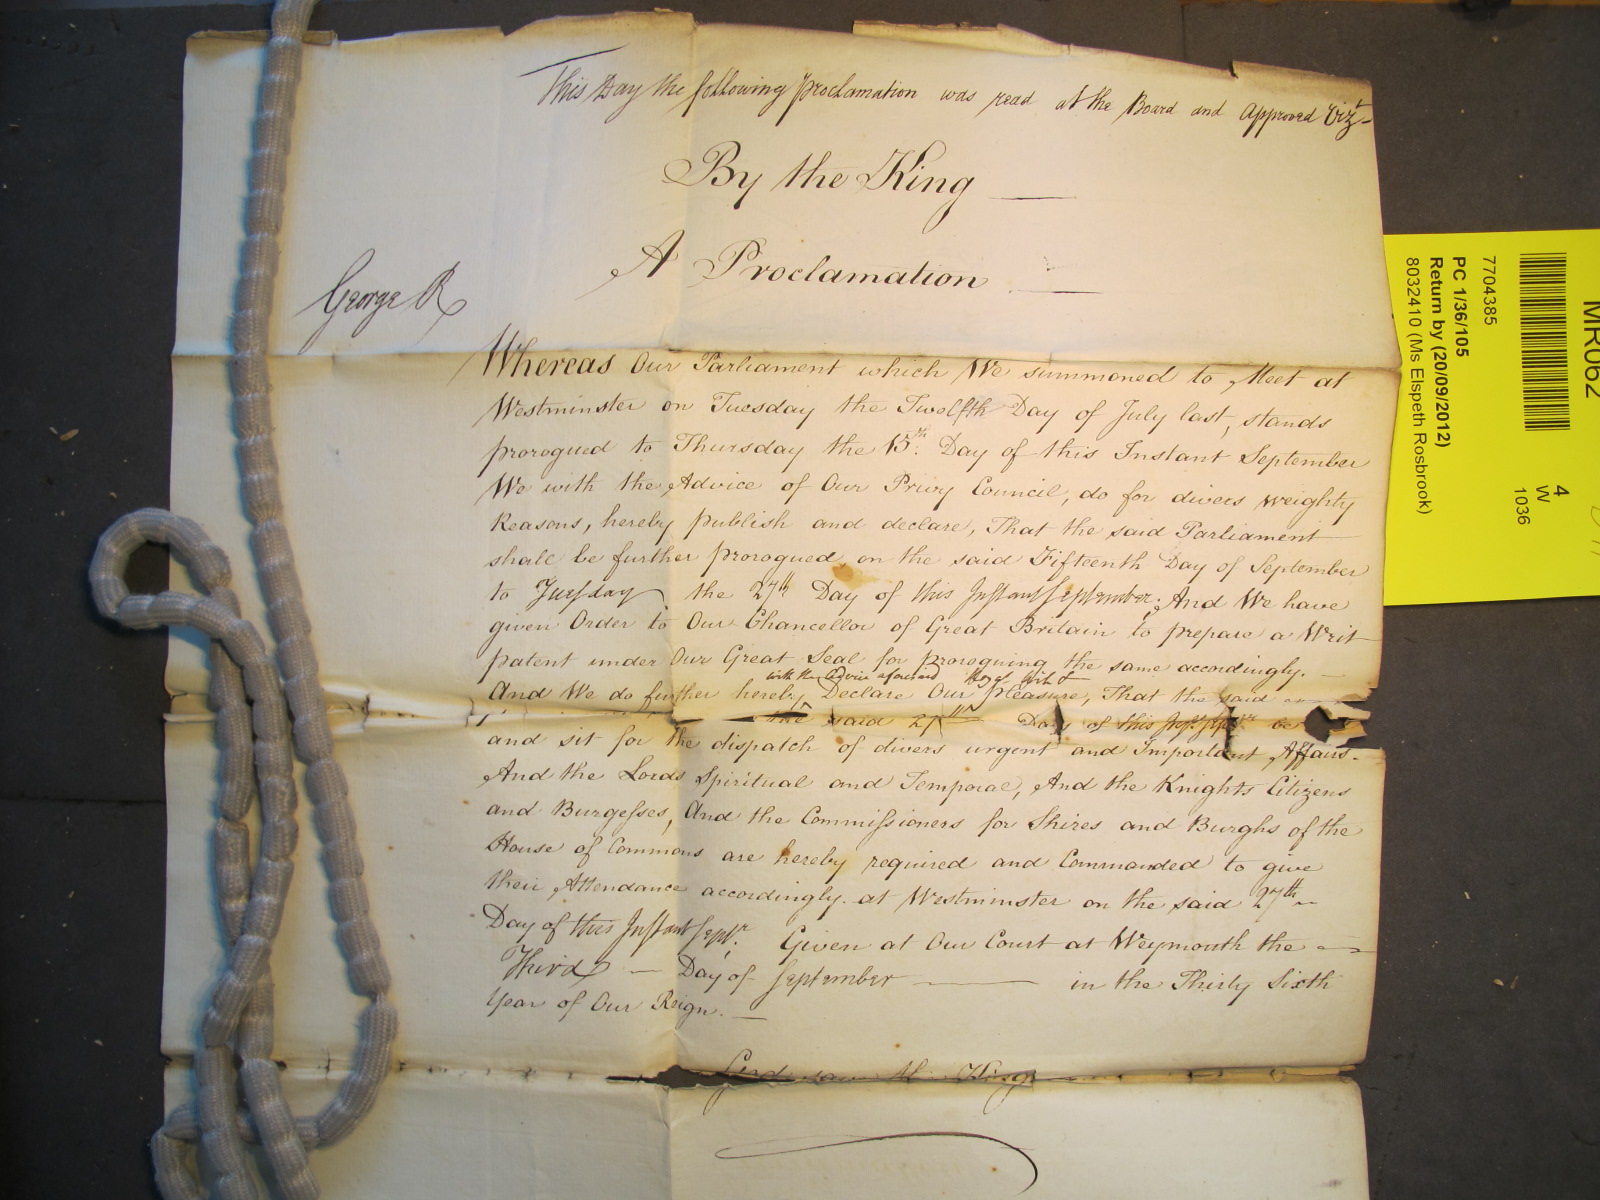 This Day the following Proclamation was read at the Board and Approved Vizt
By the King
A Proclamation
George R
Whereas Our Parliament which We summoned to Meet at
Westminster on Tuesday the Twelfth Day of July last, stands
prorogued to Thursday the 15th. Day of this Instant September
We with the Advice of Our Privy Council, do for divers weighty
Reasons, hereby publish and declare, That the said Parliament
shall be further prorogued, on the said Fifteenth Day of September
to Tuesday the 27th Day of this Instant September. And We have
given Order to Our Chancellor of Great Britain to prepare a Writ
patent under Our Great Seal for proroguing the same accordingly.
with the Advice aforesaid
And We do further hereby Declare Our pleasure, That the said
the said 27th Day of this Inst. Septr be
and sit for the dispatch of divers urgent and Important Affairs.
And the Lords Spiritual and Temporal, And the Knights Citizens
and Burgesses, And the Commissioners for Shires and Burghs of the
House of Commons are hereby required and Commanded to give
their Attendance accordingly. at Westminster on the said 27th
Day of this Instant Septr. Given at Our Court at Weymouth the
Third Day of September in the Thirty Sixth
Year of Our Reign.
God save the King
MR062
7704385
PC 1/36/105
Return by (20/09/2012)
8032410 (Ms Elspeth Rosbrook)
4
W
1036